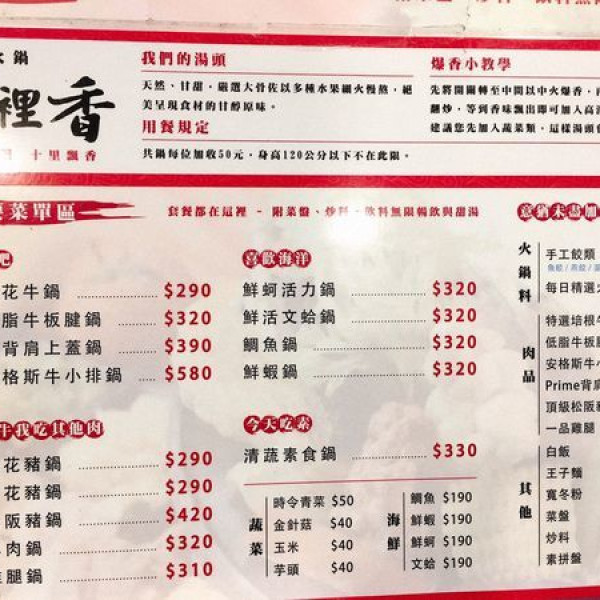 水鍋
裡香
十里飄香
我們的湯頭
天然、甘甜,嚴選大骨佐以多種水果細火慢熬,絕
美呈現食材的甘醇原味。
用餐規定
共鍋每位加收50元,身高120公分以下不在此限。
爆香小教學
先將開關轉至中間以中火爆香,再
翻炒,等到香味飄出即可加入高湯
建議您先加入蔬菜類,這樣湯頭會
菜單區
套餐都在這裡 - 附菜盤、炒料、飲料無限暢飲與甜湯
吧
花牛鍋 $290
脂牛板腱鍋 $320
背肩上蓋鍋 $390
格斯牛小排鍋 $580
牛我吃其他肉
花豬鍋 $290
花鍋 $290
阪豬鍋 $420
肉鍋 $320
腿鍋 $310
喜歡海洋
鮮蚵活力鍋 $320
鮮活文蛤鍋 $320
鯛魚鍋 $320
鮮蝦鍋 $320
今天吃素
清蔬素食鍋 $330
蔬菜
時令青菜 $50
金針菇 $40
玉米 $40
芋頭 $40
海鮮
鯛魚 $190
鮮蝦 $190
鮮蚵 $190
文蛤 $190
意猶未盡加
火鍋料
手工餃類
魚餃/燕餃/
每日精選火
肉品
特選培根牛
低脂牛板腱
安格斯牛小
Prime背肩
頂級松阪豬
一品雞腿
其他
白飯
王子麵
寬冬粉
菜盤
炒料
素拼盤